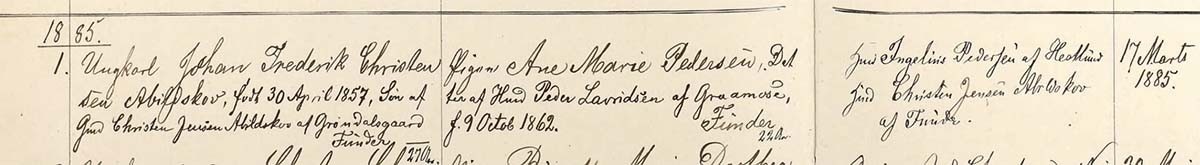 1885.
1. Ungkarl Johan Frederik Christen Pigen Ane Marie Pedersen, Dat Hmd Ingelius Pedersen af Hedlund 17 Marts
sen Abildskov, født 30 April 1857, Søn af ter af Hmd Peder Lavridsen af Graamose, Hmd Christen Jensen Abildskov 1885.
Gmd Christen Jensen Abildskov af Grøndalsgaard f. 9 Octob 1862. Funder af Funder.
Funder 27 Aar. 22 Aar.